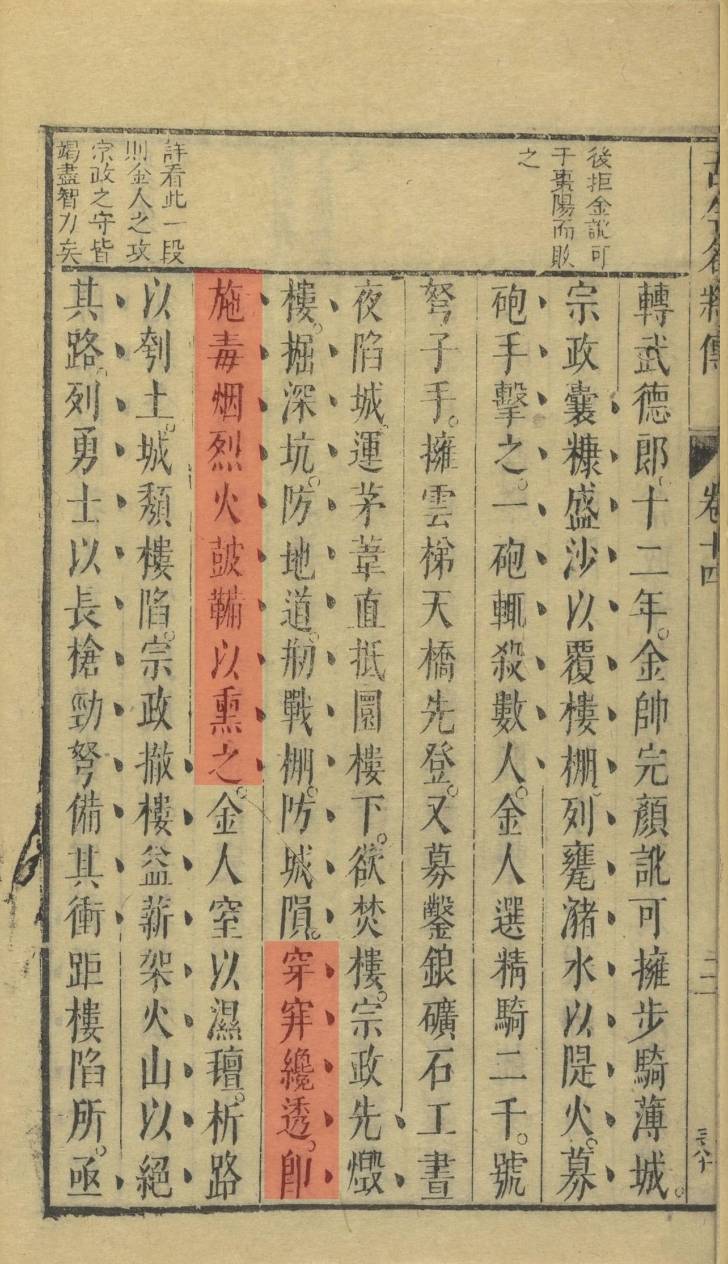 古今名將傳
卷十四
二
後拒金訛可
于棗陽而敗
之
詳看此一段
則金人之攻
宗政之守皆
竭盡智力矣
轉武德郎。十二年。金帥完顏訛可擁步騎薄城。
宗政囊糠盛沙以覆樓棚。列甕瀦水以隄火。募
砲手擊之。一砲輒殺數人。金人選精騎二千。號
弩子手。擁雲梯天橋先登。又募鑿銀礦石工晝
夜陷城。運茅葦直抵圜樓下。欲焚樓。宗政先燬
樓。掘深坑。防地道。剏戰棚。防城隕。穿穽纔透。卽
施毒烟烈火鼓鞴以熏之。金人窒以濕氊。析路
以刳土。城頹樓陷。宗政撤樓益薪架火山以絕
其路。列勇士以長槍勁弩備其衝。距樓陷所。亟